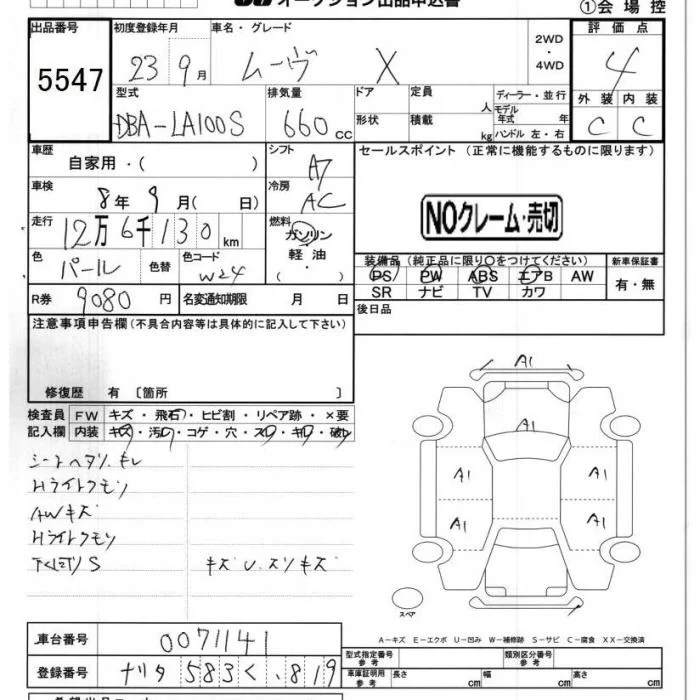 JU オークション出品申込書
①会場控
出品番号 初度登録年月 車名・グレード 2WD ・ 4WD 評価点
5547 23 9月 ムーヴ X 4
型式 排気量 ドア 定員 人 ディーラー・並行 外装 内装
DBA-LA100S 660 cc 形状 積載 kg モデル年式 年 ハンドル 左・右 C C
車歴 自家用・( ) シフト A7 セールスポイント(正常に機能するものに限ります)
車検 8年 9月( 日) 冷房 AC
NOクレーム・売切
走行 12万6千130km 燃料 ガソリン 軽油 ( ・ )
色 パール 色替 色コード W24
装備品(純正品に限り○をつけてください) 新車保証書
PS PW ABS エアB AW 有・無
SR ナビ TV カワ
R券 9080円 名変通知期限 月 日 後日品
注意事項申告欄(不具合内容等は具体的に記入して下さい)
修復歴 有 〔箇所 〕
検査員 FW キズ・飛石・ヒビ割・リペア跡・×要
記入欄 内装 キズ・汚れ・コゲ・穴・スレ・キレ・破レ
シートヘタリ.キレ
Hライトクモリ
AWキズ
Hライトクモリ
キズ U.スリキズ
A1
A1
A1 A1
A1 A1
スペア
A-キズ E-エクボ U-凹み W-補修跡 S-サビ C-腐食 XX-交換済
車台番号 0071141 型式指定番号 参考 類別区分番号 参考
登録番号 ナリタ 583 く .819 車庫証明用 参考 長さ cm 幅 cm 高さ cm